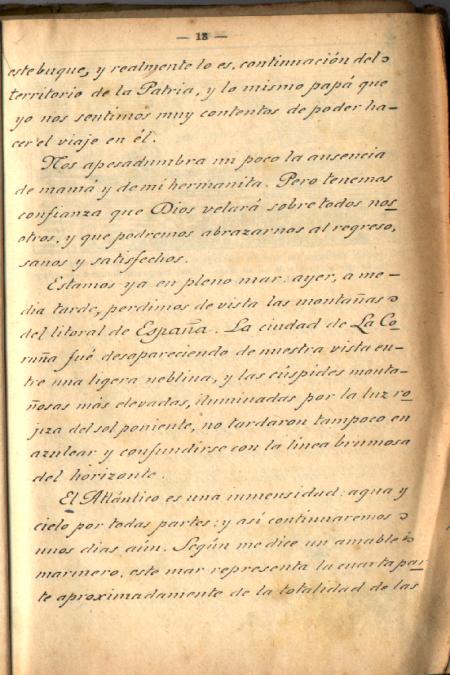 — 18 —
este buque, y realmente lo es, continuación del
territorio de la Patria, y lo mismo papá que
yo nos sentimos muy contentos de poder ha-
cer el viaje en él.
Nos apesadumbra un poco la ausencia
de mamá y de mi hermanita. Pero tenemos
confianza que Dios velará sobre todos nos
otros, y que podremos abrazarnos al regreso,
sanos y satisfechos.
Estamos ya en pleno mar: ayer, a me-
dia tarde, perdimos de vista las montañas
del litoral de España. La ciudad de La Co
ruña fué desapareciendo de nuestra vista en-
tre una ligera neblina, y las cúspides monta-
ñosas más elevadas, iluminadas por la luz ro
jiza del sol poniente, no tardaron tampoco en
azulear y confundirse con la línea brumosa
del horizonte.
El Atlántico es una inmensidad: agua y
cielo por todas partes: y así continuaremos
unos días aún. Según me dice un amable
marinero, este mar representa la cuarta par
te aproximadamente de la totalidad de las